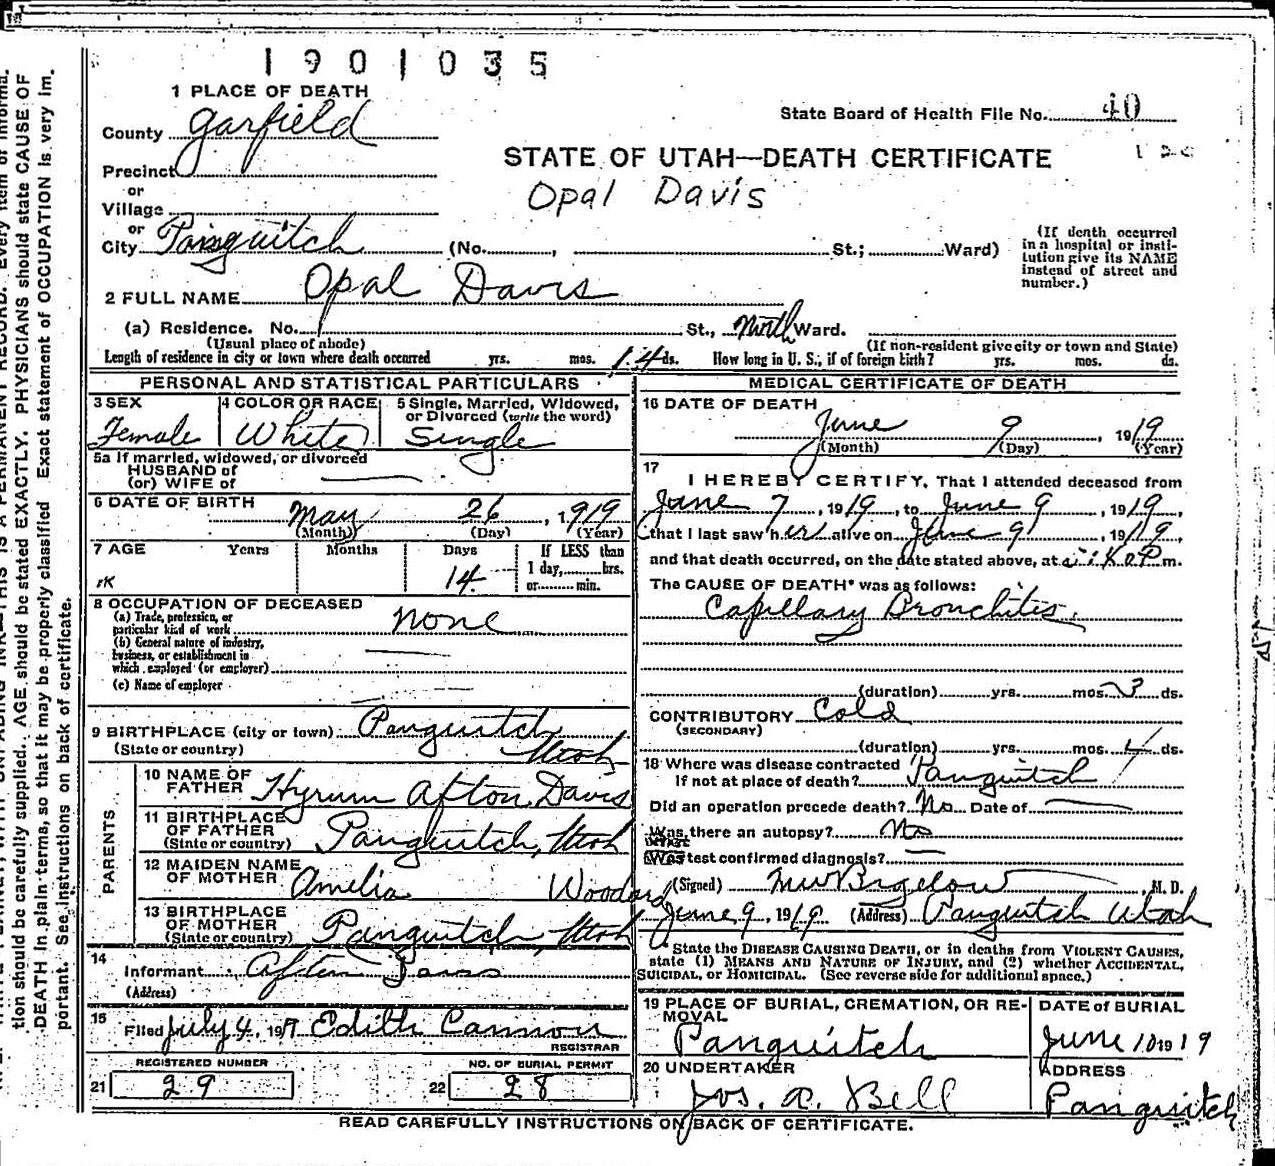 1901035
1 PLACE OF DEATH
State Board of Health File No. 40
County Garfield
STATE OF UTAH—DEATH CERTIFICATE
Precinct
Opal Davis
or
Village
or
City Panguitch (No. , St.; Ward)
(If death occurred
in a hospital or insti-
tution give its NAME
instead of street and
number.)
2 FULL NAME Opal Davis
(a) Residence. No. St., North Ward.
(Usual place of abode) (If non-resident give city or town and State)
Length of residence in city or town where death occurred yrs. mos. 14 ds. How long in U. S., if of foreign birth? yrs. mos. ds.
PERSONAL AND STATISTICAL PARTICULARS
3 SEX 4 COLOR OR RACE 5 Single, Married, Widowed,
or Divorced (write the word)
Female White Single
5a If married, widowed, or divorced
HUSBAND of
(or) WIFE of
6 DATE OF BIRTH
May 26, 1919
(Month) (Day) (Year)
7 AGE Years Months Days If LESS than
1 day, hrs.
14 or min.
8 OCCUPATION OF DECEASED
(a) Trade, profession, or
particular kind of work None
(b) General nature of industry,
business, or establishment in
which employed (or employer)
(c) Name of employer
9 BIRTHPLACE (city or town) Panguitch
(State or country) Utah
PARENTS
10 NAME OF
FATHER Hyrum Afton Davis
11 BIRTHPLACE
OF FATHER
(State or country) Panguitch, Utah
12 MAIDEN NAME
OF MOTHER Amelia Woodard
13 BIRTHPLACE
OF MOTHER
(State or country) Panguitch, Utah
14
Informant Afton Davis
(Address)
15
Filed July 4, 19 Edith Cannon
REGISTRAR
REGISTERED NUMBER NO. OF BURIAL PERMIT
21 29 22 28
MEDICAL CERTIFICATE OF DEATH
16 DATE OF DEATH
June 9, 1919
(Month) (Day) (Year)
17
I HEREBY CERTIFY, That I attended deceased from
June 7, 1919, to June 9, 1919,
that I last saw her alive on June 9, 1919,
and that death occurred, on the date stated above, at P m.
The CAUSE OF DEATH* was as follows:
Capillary Bronchitis.
(duration) yrs. mos. 3 ds.
CONTRIBUTORY Cold
(SECONDARY)
(duration) yrs. mos. 4 ds.
18 Where was disease contracted
if not at place of death? Panguitch
Did an operation precede death? No Date of
Was there an autopsy? No
What test confirmed diagnosis?
(Signed) M W Bigelow, M. D.
June 9, 1919 (Address) Panguitch Utah
*State the DISEASE CAUSING DEATH, or in deaths from VIOLENT CAUSES,
state (1) MEANS AND NATURE OF INJURY, and (2) whether ACCIDENTAL,
SUICIDAL, or HOMICIDAL. (See reverse side for additional space.)
19 PLACE OF BURIAL, CREMATION, OR RE-
MOVAL
DATE of BURIAL
Panguitch June 10 1919
20 UNDERTAKER ADDRESS
Jos. A. Bell Panguitch
READ CAREFULLY INSTRUCTIONS ON BACK OF CERTIFICATE.
tion should be carefully supplied. AGE should be stated EXACTLY. PHYSICIANS should state CAUSE OF
DEATH in plain terms, so that it may be properly classified Exact statement of OCCUPATION is very im-
portant. See instructions on back of certificate.